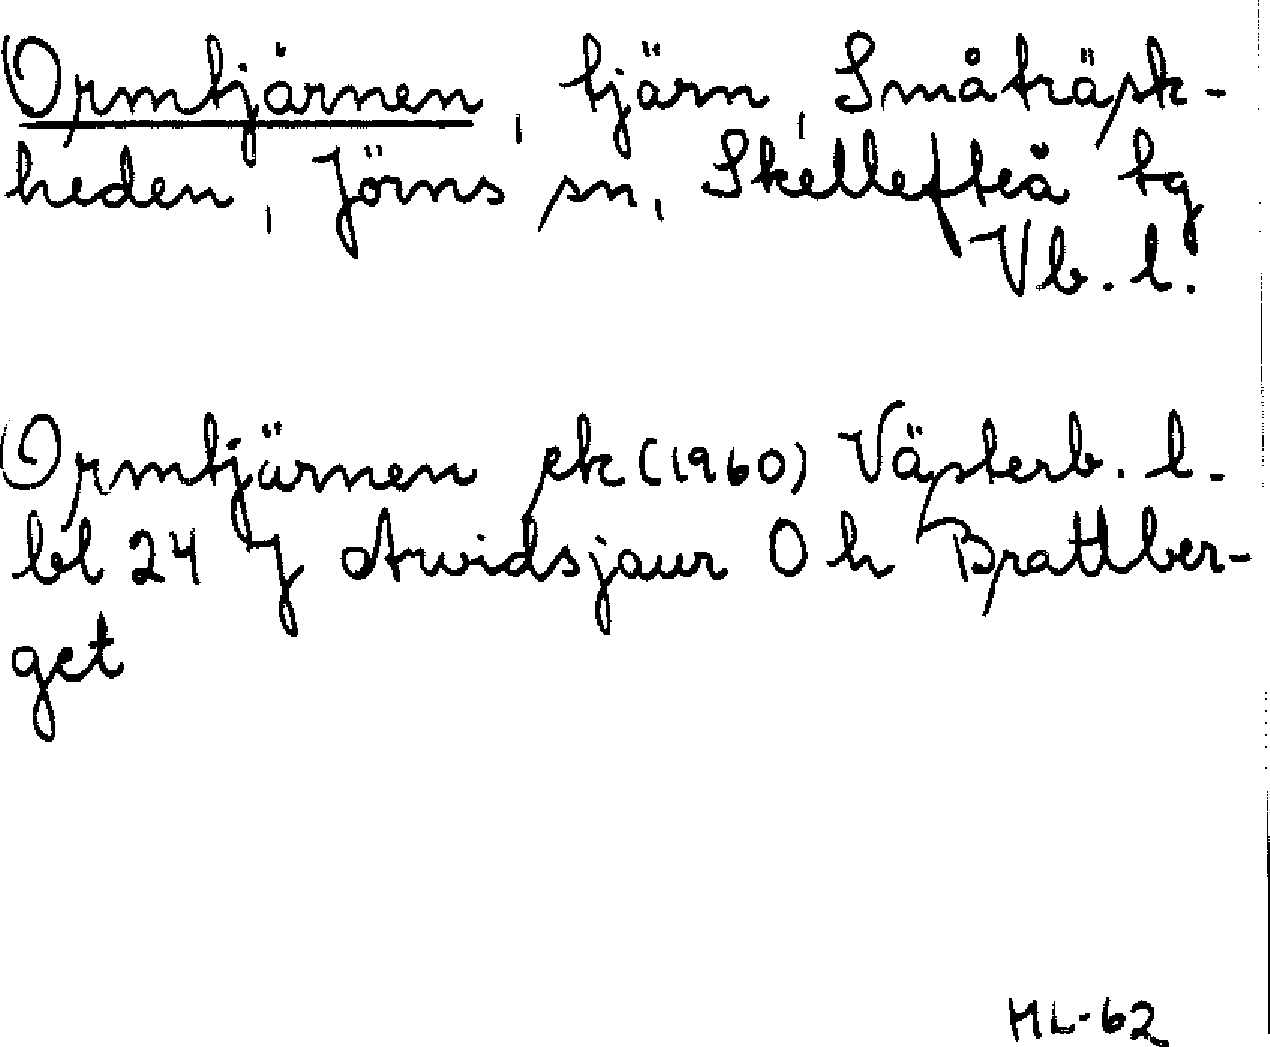 Ormtjärnen, tjärn, Småträsk-
heden, Jörns sn, Skellefteå tg
Vb. l.
Ormtjärnen ek (1960) Västerb. l.
bl 24 J Arvidsjaur O h Brattber-
get
ML-62